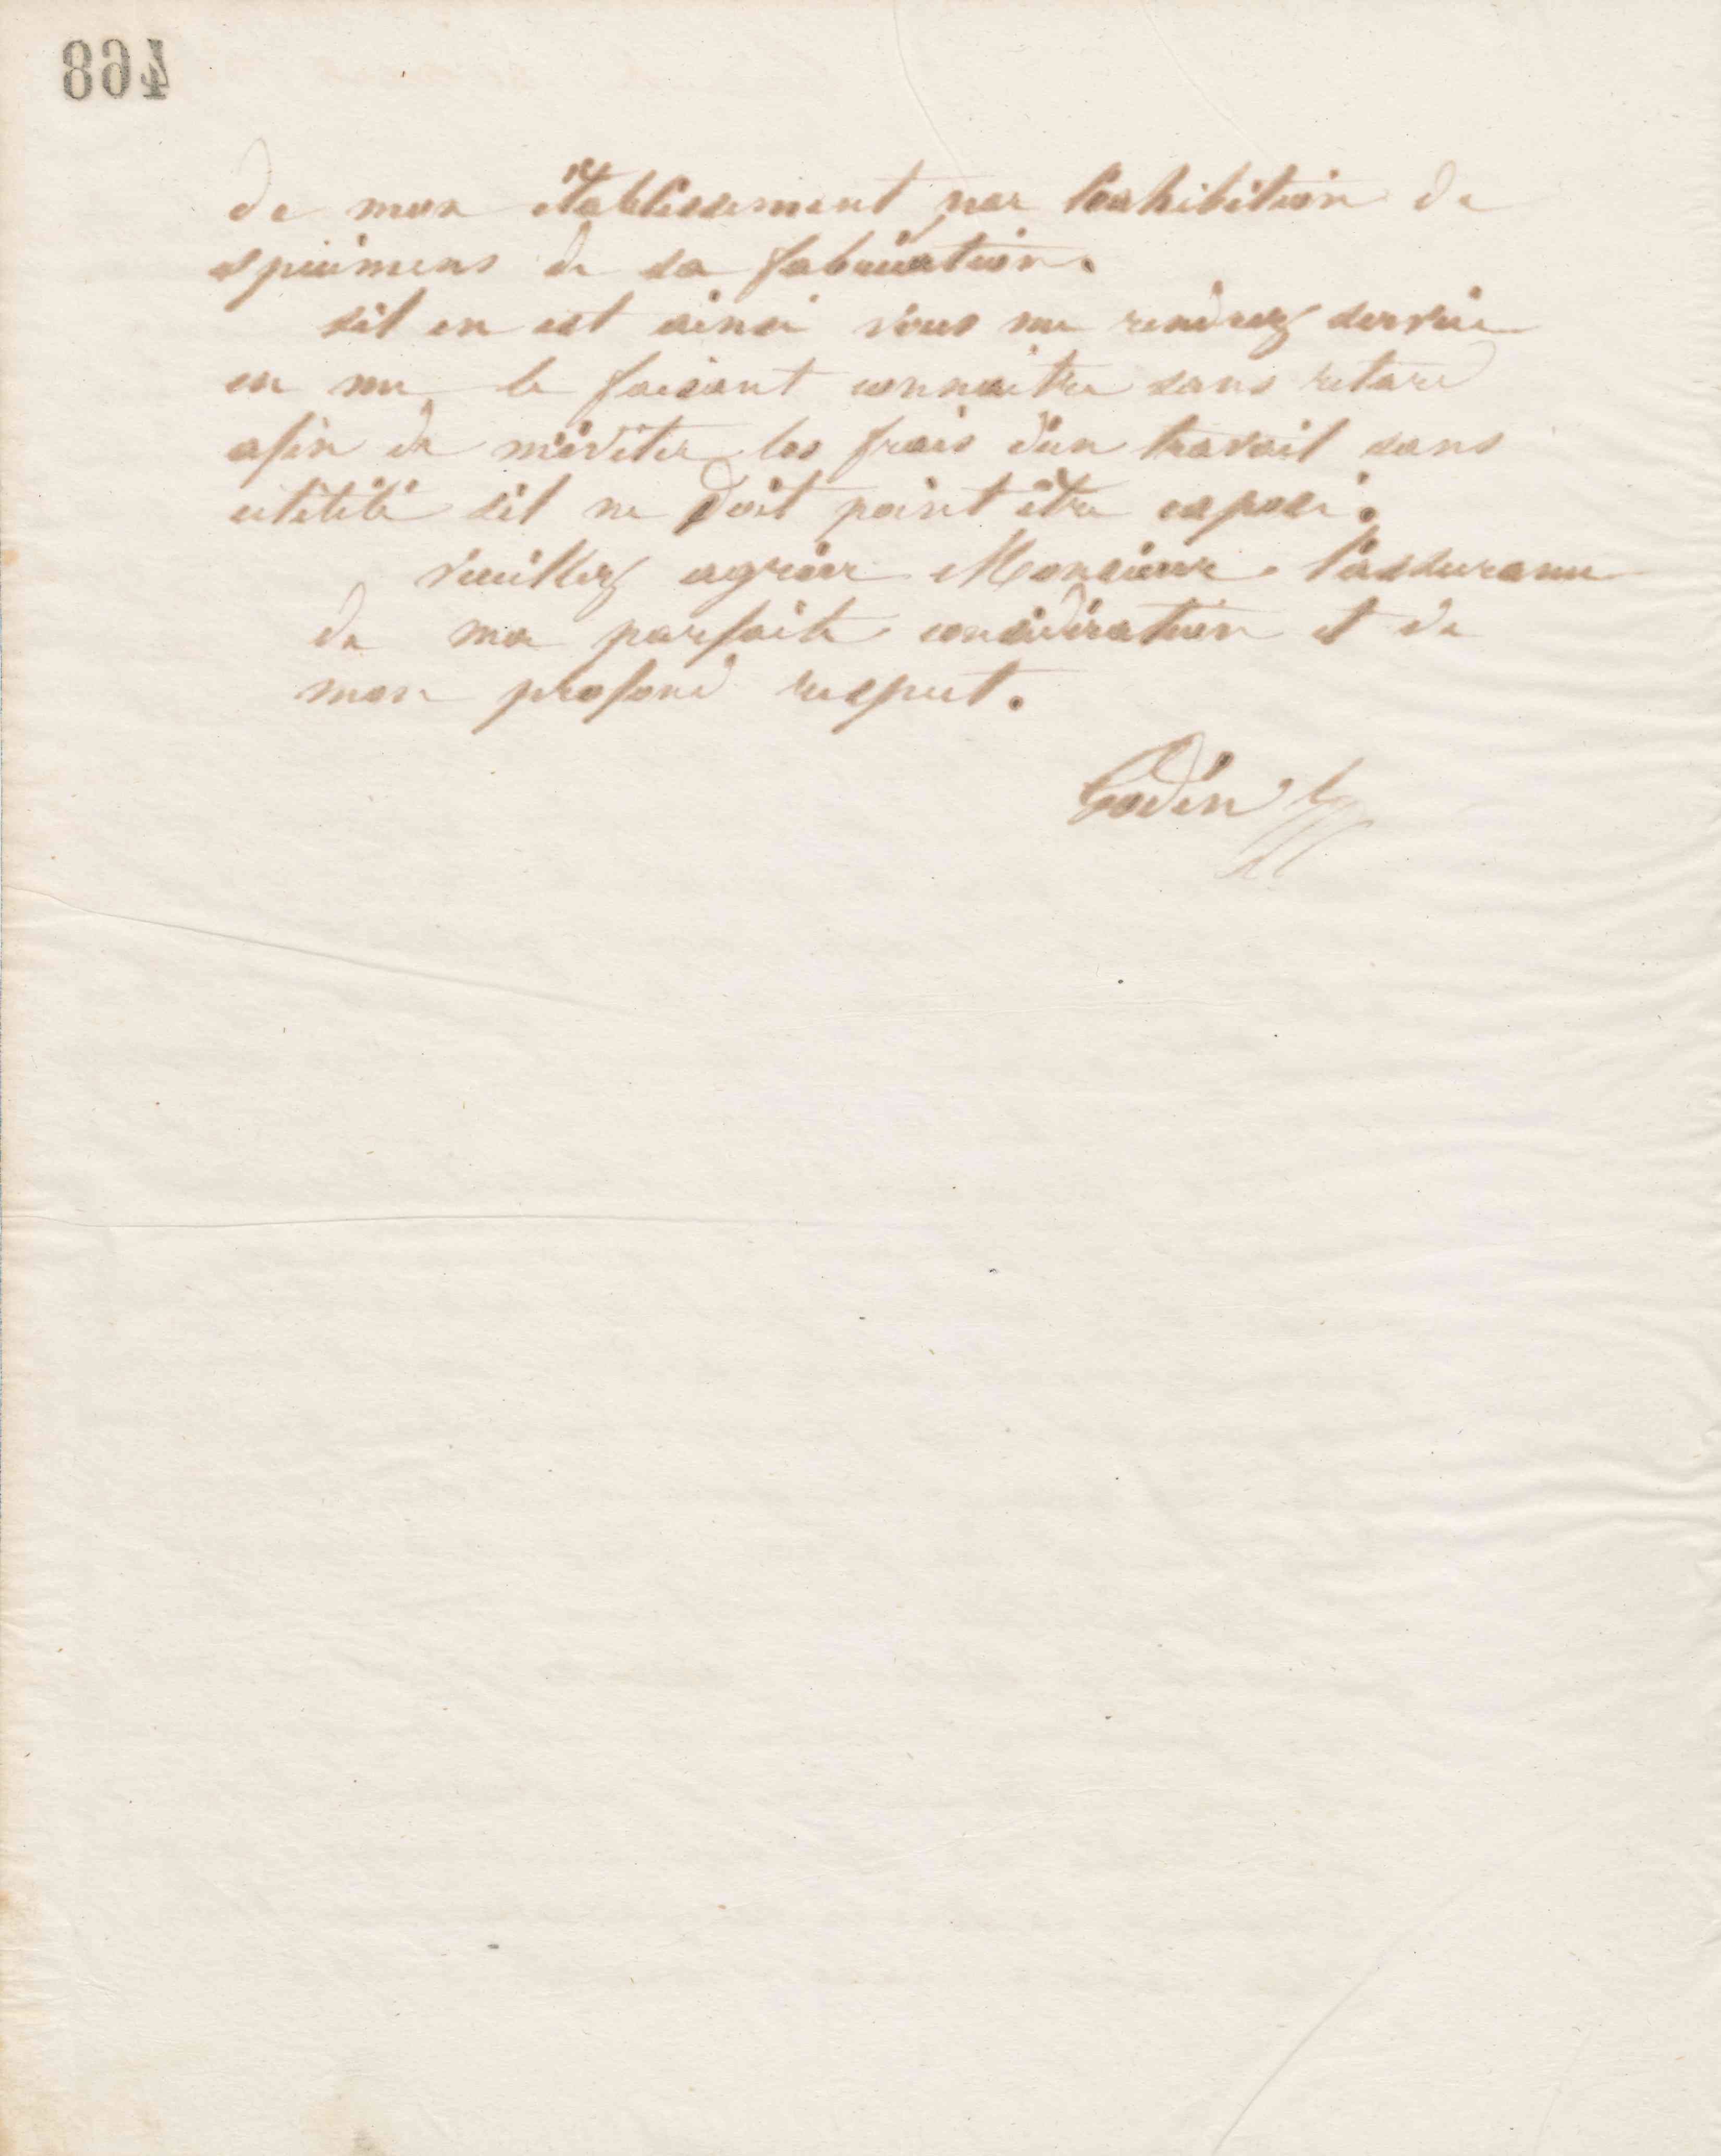 468
de mon établissement par l'exhibition de
spécimens de sa fabrication.
s'il en est ainsi vous me rendrez service
en me le faisant connaitre sans retard
afin de m'éviter les frais d'un travail sans
utilité s'il ne doit point être exposé.
veuillez agréer Monsieur l'assurance
de ma parfaite considération et de
mon profond respect.
Godin